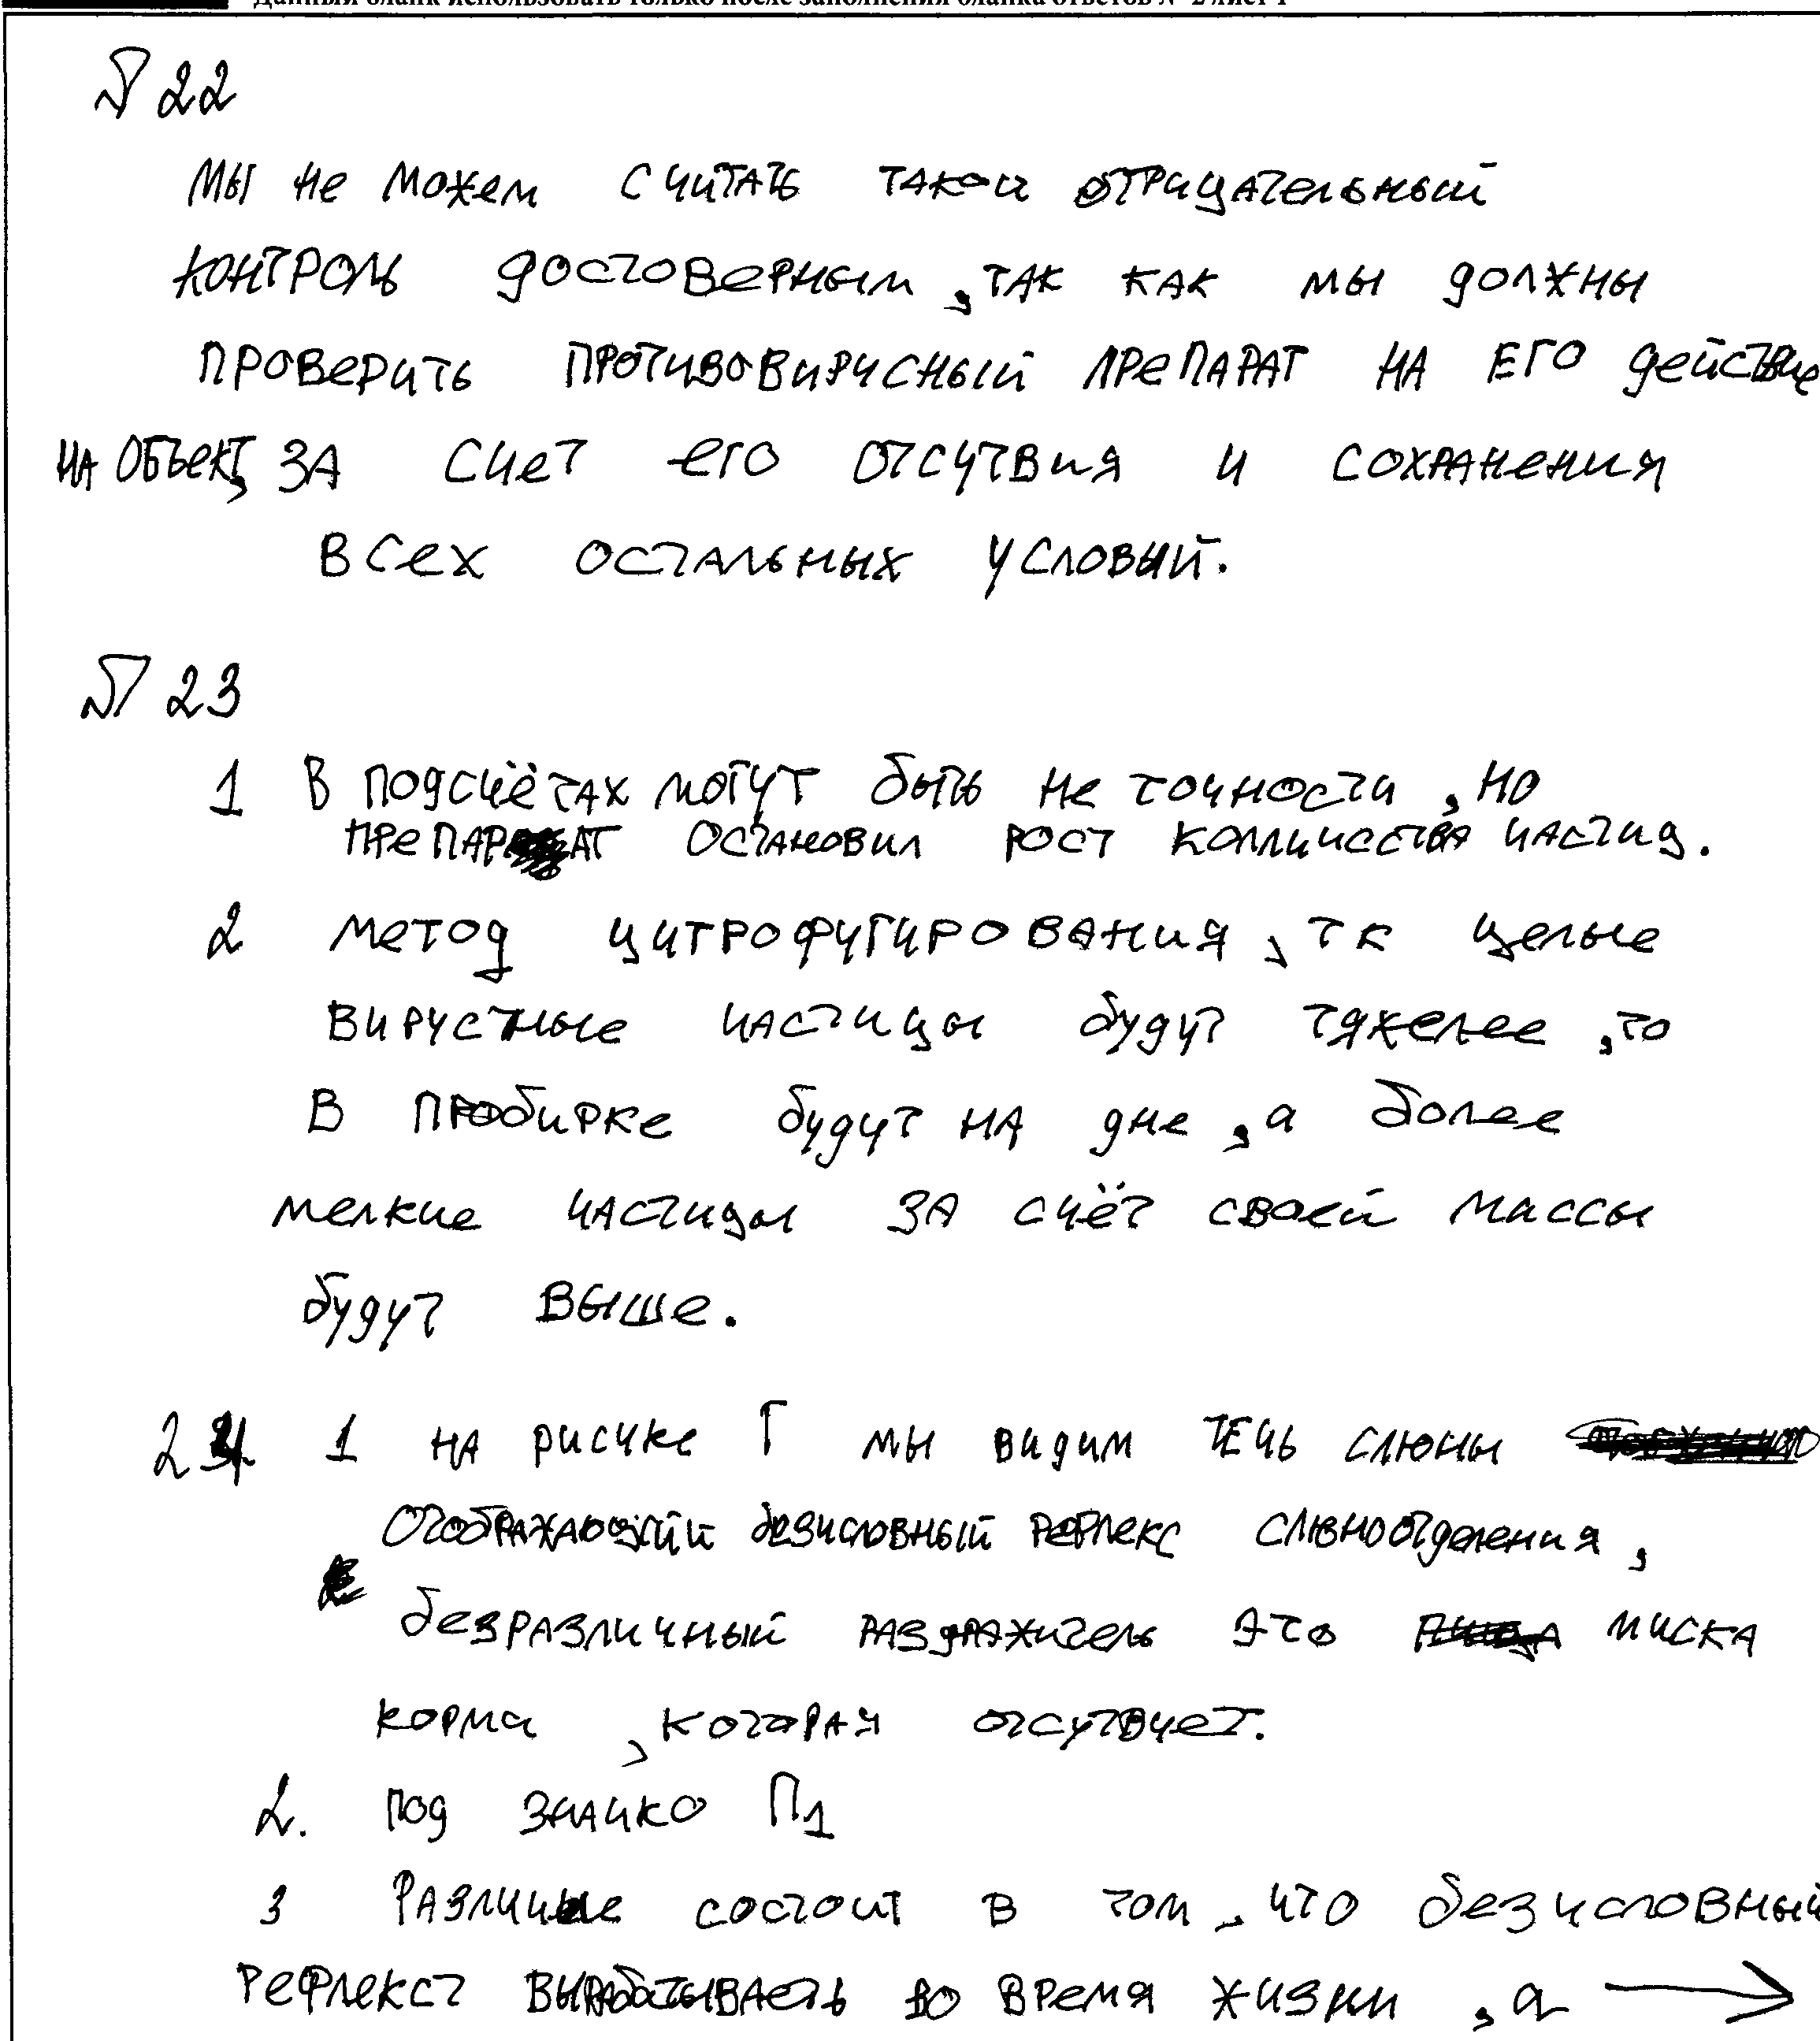 Данный бланк использовать только после заполнения бланка ответов № 2 лист 1
№ 22
Мы не можем считать такой отрицательный
контроль достоверным, так как мы должны
проверить противовирусный препарат на его действие
на объект, за счет его отсутвия и сохранения
всех остальных условий.
№ 23
1 В подсчётах могут быть не точности, но
препарат остановил рост колличества частиц.
2 метод цитрофугирования, тк целые
вирустные частицы будут тяжелее, то
в пробирке будут на дне, а более
мелкие частицы за счёт своей массы
будут выше.
24 1 на рисуке Г мы видим течь слюны
отображающий безусловный рефлекс слюноотделения,
безразличный раздражитель это миска
корма, которая отсутвует.
2. под значко П1
3 Различие состоит в том, что безусловный
рефлекст вырабатывать во время жизни, а →